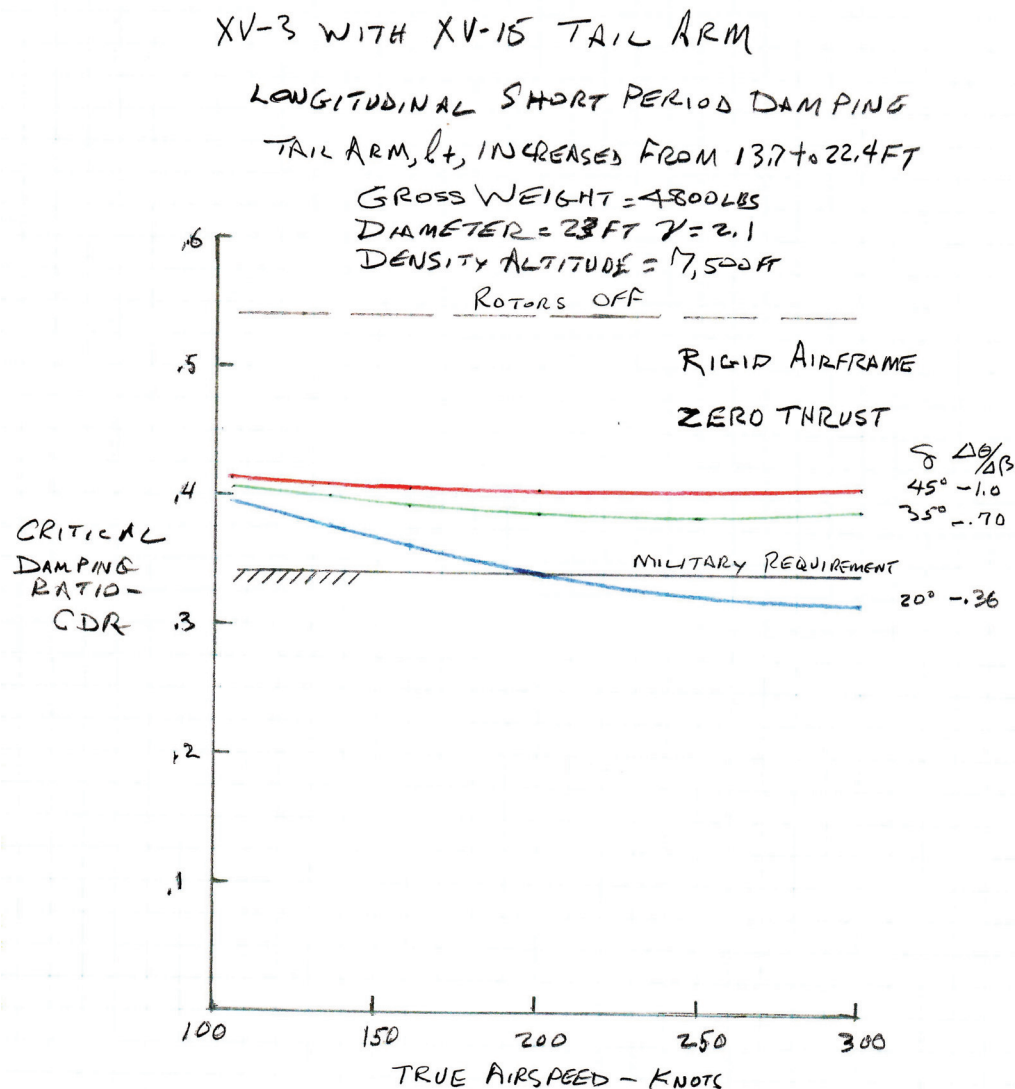 XV-3 WITH XV-15 TAIL ARM
LONGITUDINAL SHORT PERIOD DAMPING
TAIL ARM, lt, INCREASED FROM 13.7 to 22.4 FT
GROSS WEIGHT = 4800 LBS
DIAMETER = 23 FT γ = 2.1
DENSITY ALTITUDE = 7,500 FT
ROTORS OFF
RIGID AIRFRAME
ZERO THRUST
Δθ/Δβ
45° -1.0
35° -.70
MILITARY REQUIREMENT
20° -.36
CRITICAL
DAMPING
RATIO-
CDR
.6
.5
.4
.3
.2
.1
100 150 200 250 300
TRUE AIRSPEED - KNOTS